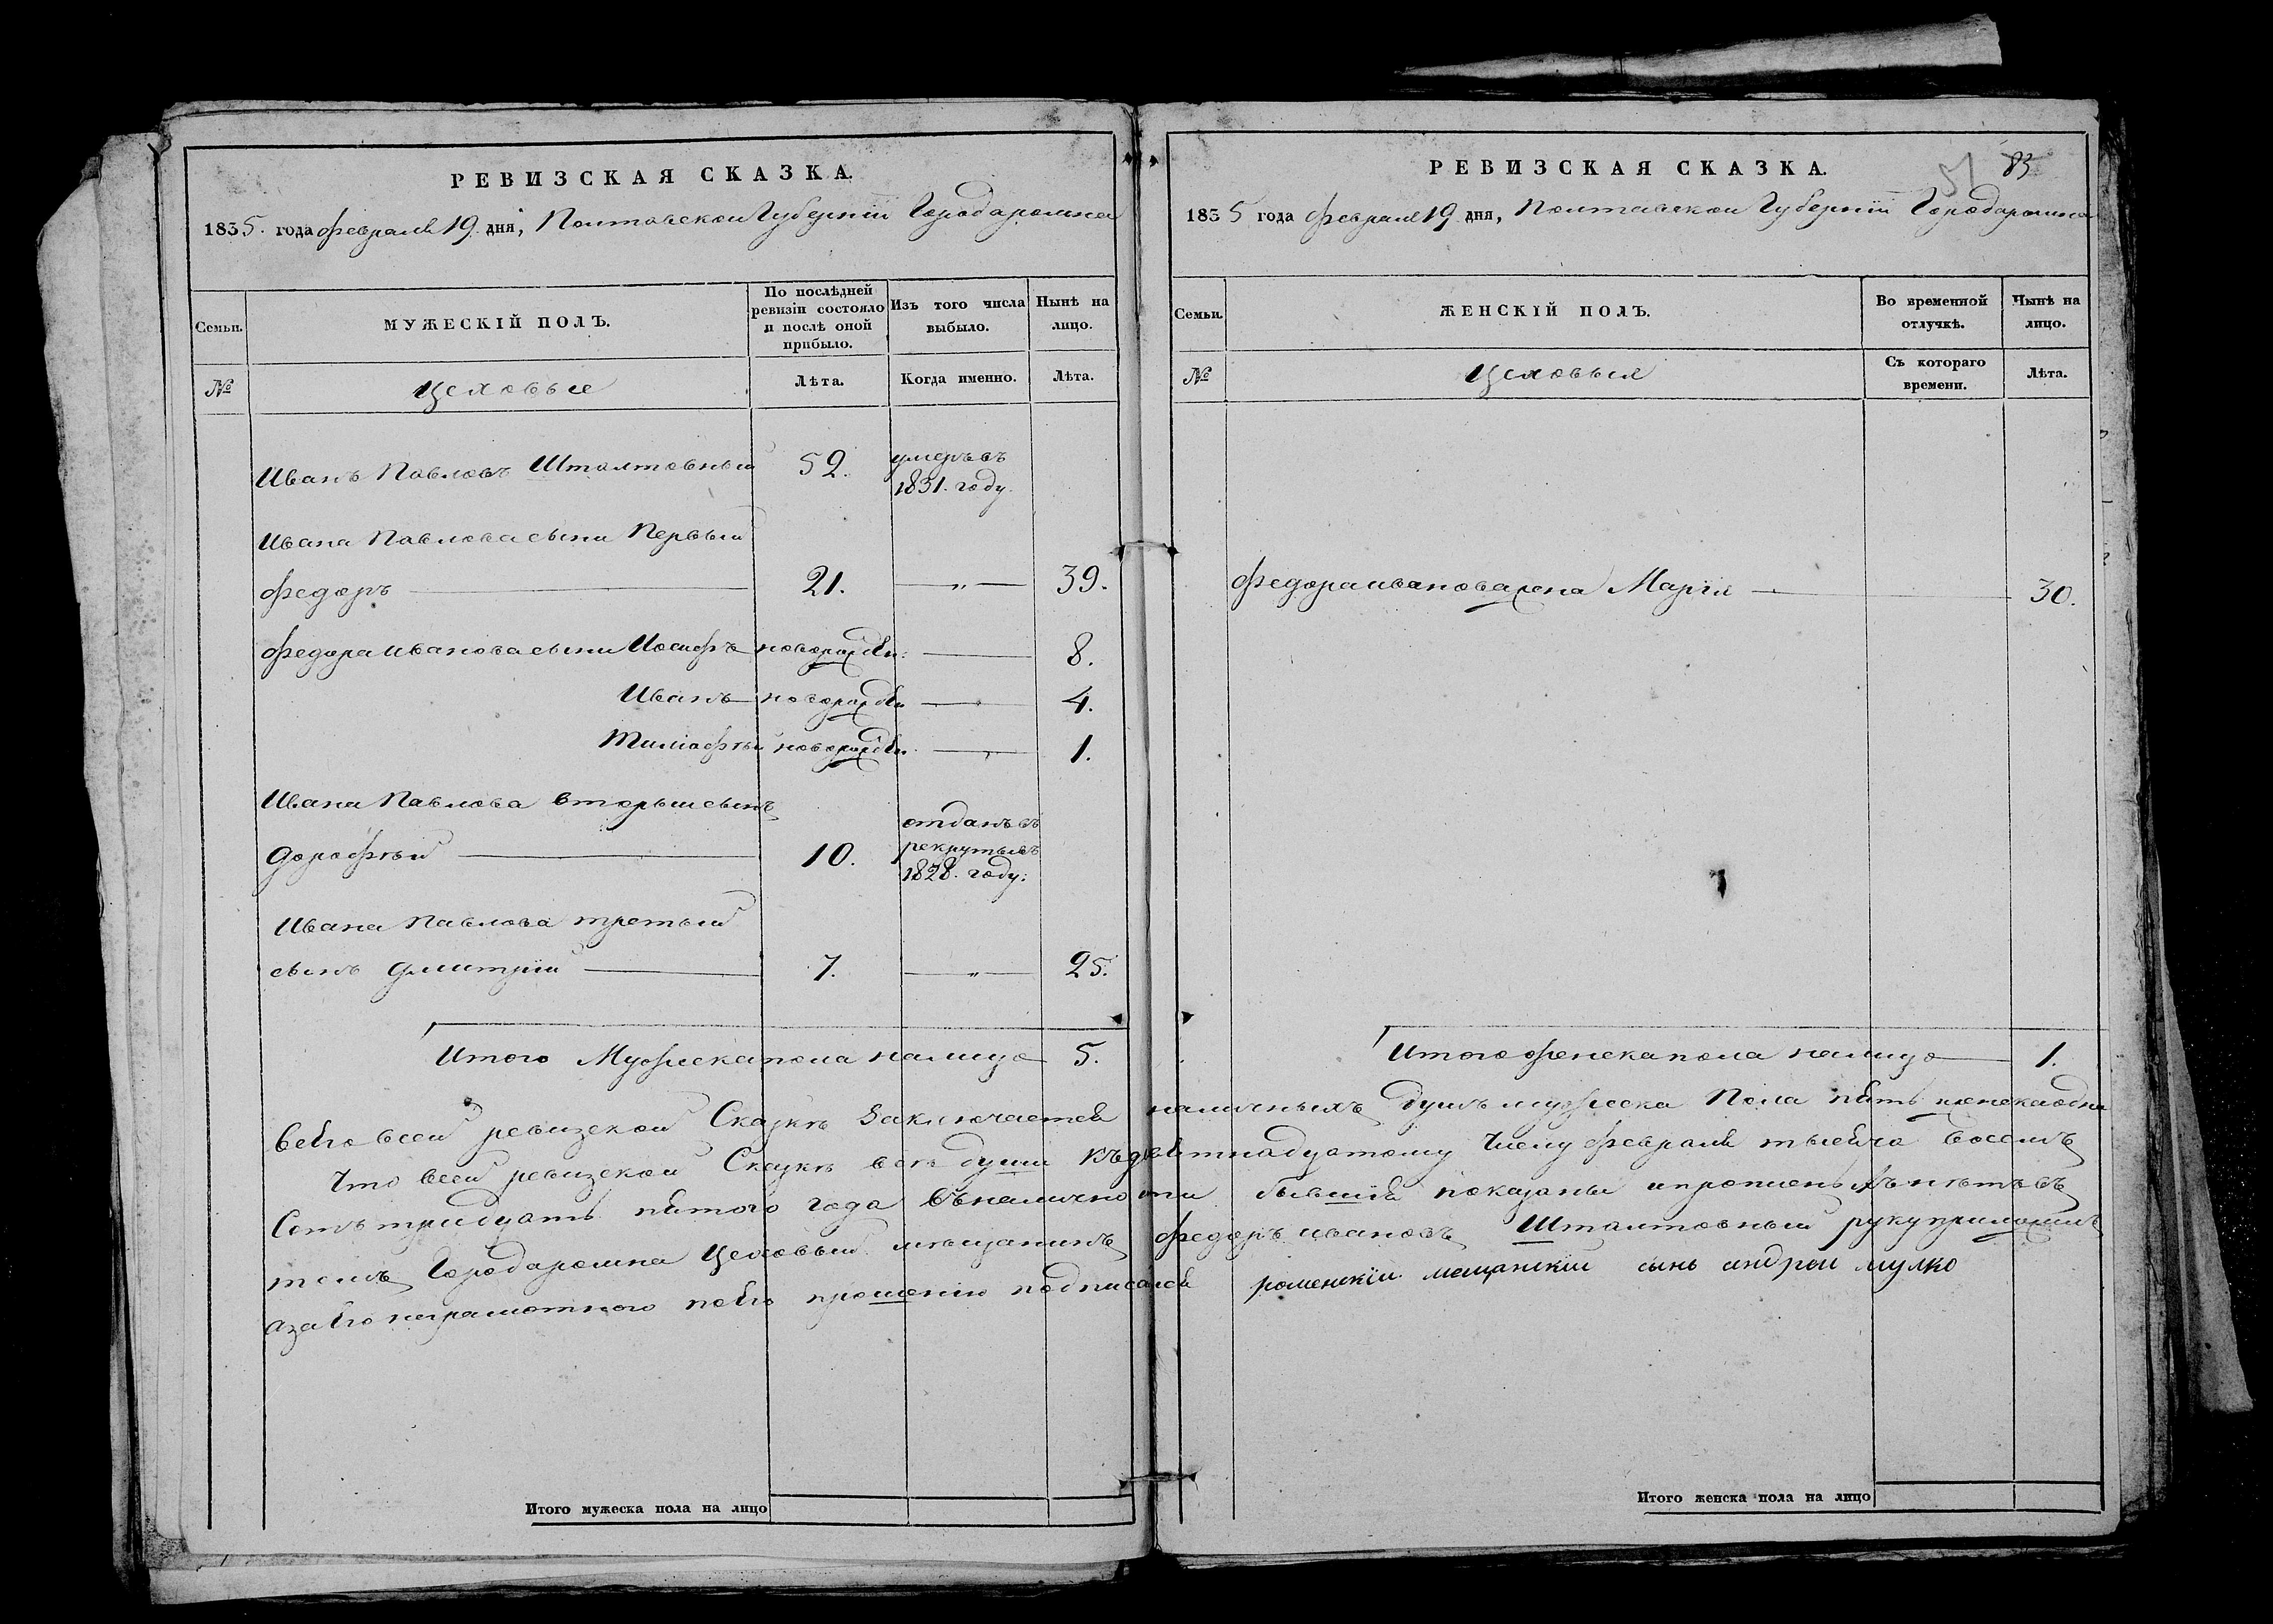 РЕВИЗСКАЯ СКАЗКА.
1835. года февраля 19. дня, Полтавской Губернiи Города ромна
Семьи.
МУЖЕСКIЙ ПОЛЪ.
По послѣдней ревизiи состояло и послѣ оной прибыло.
Изъ того числа выбыло.
Нынѣ на лицо.
№
Цеховые
Лѣта.
Когда именно.
Лѣта.
Иванъ Павловъ Шталтовный 52. умеръ въ
1831. году.
Ивана Павлова сыни Первый
Федоръ 21. „ 39.
Федора Иванова сыни Иосифъ новорожден: 8.
Иванъ новорожден 4.
Тимофѣй новорожден. 1.
Ивана Павлова вторый сынъ
Дорофѣй 10. отданъ въ
рекруты въ
1828. году.
Ивана Павлова третый
сынъ Дмитрiй 7. „ 25.
Итого Мужеска пола налицо 5.
РЕВИЗСКАЯ СКАЗКА.
83
1835 года Февраля 19 дня, Полтавской Губернiи Города ромна
Семьи.
ЖЕНСКIЙ ПОЛЪ.
Во временной отлучкѣ.
Нынѣ на лицо.
№
Цеховыя
Съ котораго времени.
Лѣта.
Федора иванова жена Марiя 30.
Итого женска пола налицо 1.
Всѣго всей ревизской Сказкѣ Заключается наличныхъ душъ мужеска Пола пять женска одна
Что всей ревизской Сказкѣ всѣ души къ девятнадцатому Числу февраля тысяча восемъ
Сотъ тридцать пятого года въ наличности бывшiя показаны и прописныхъ нѣтъ въ
томъ Города ромна цеховый мѣщанинъ Федоръ ивановъ Шталтовный руку приложилъ
а за его неграмотного по его прошенiю подписался роменскiй мещанскiй сынъ андрей мулко
Итого мужеска пола на лицо
Итого женска пола на лицо